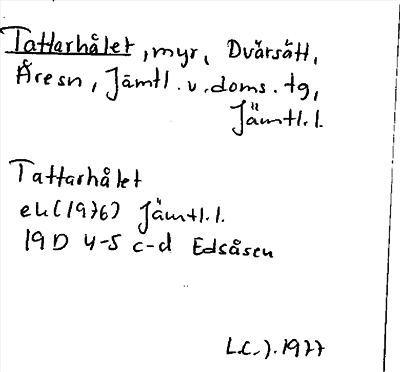 Tattarhålet, myr, Dvärsätt,
Åresn, Jämtl.v.doms.tg,
Jämtl.l.
Tattarhålet
ek(1976) Jämtl.l.
19D 4-5 c-d Edsåsen
L.C.J. 1977